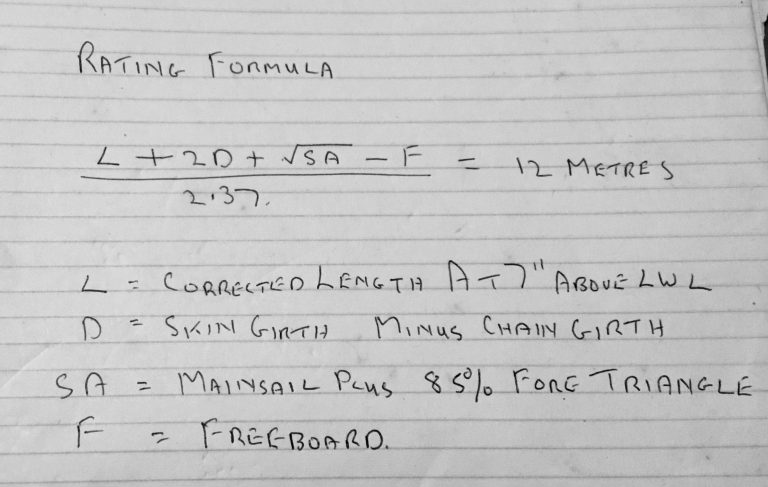 RATING FORMULA
L + 2D + √SA - F = 12 METRES
2.37.
L = CORRECTED LENGTH AT 7" ABOVE LWL
D = SKIN GIRTH MINUS CHAIN GIRTH
SA = MAINSAIL PLUS 85% FORE TRIANGLE
F = FREEBOARD.